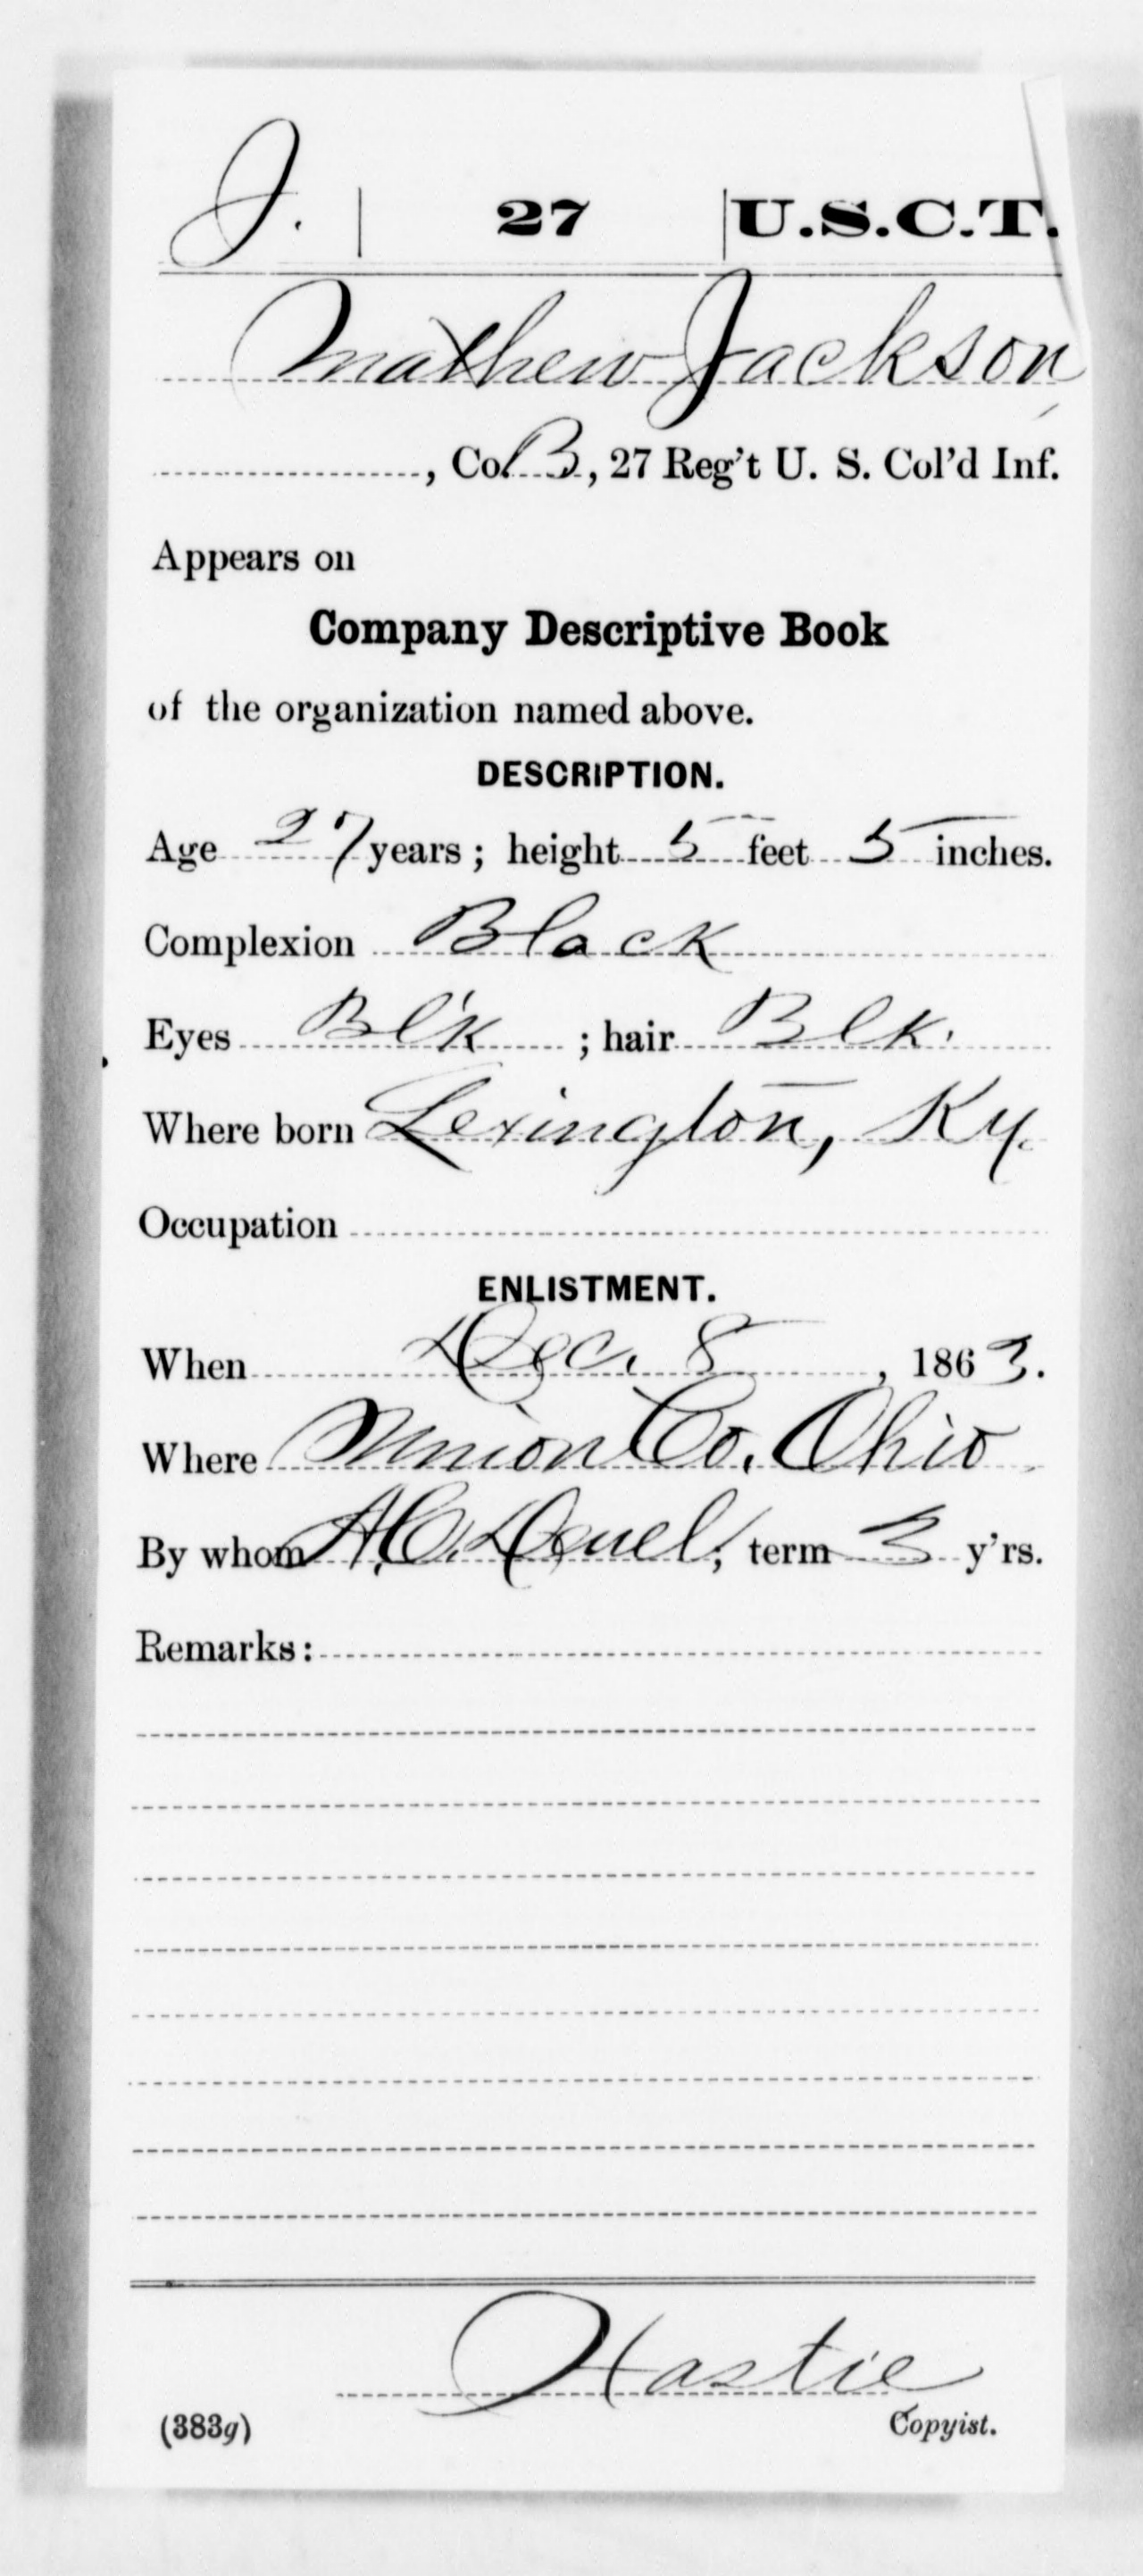 J. | 27 | U.S.C.T.
Mathew Jackson,
, Co. B, 27 Reg't U. S. Col'd Inf.
Appears on
Company Descriptive Book
of the organization named above.
DESCRIPTION.
Age 27 years; height 5 feet 5 inches.
Complexion Black
Eyes Bl'k ; hair Blk.
Where born Lexington, Ky.
Occupation
ENLISTMENT.
When Dec. 8, 1863.
Where Union Co. Ohio
By whom A.C. Deuel; term 3 y'rs.
Remarks:
Hastie
(383g) Copyist.